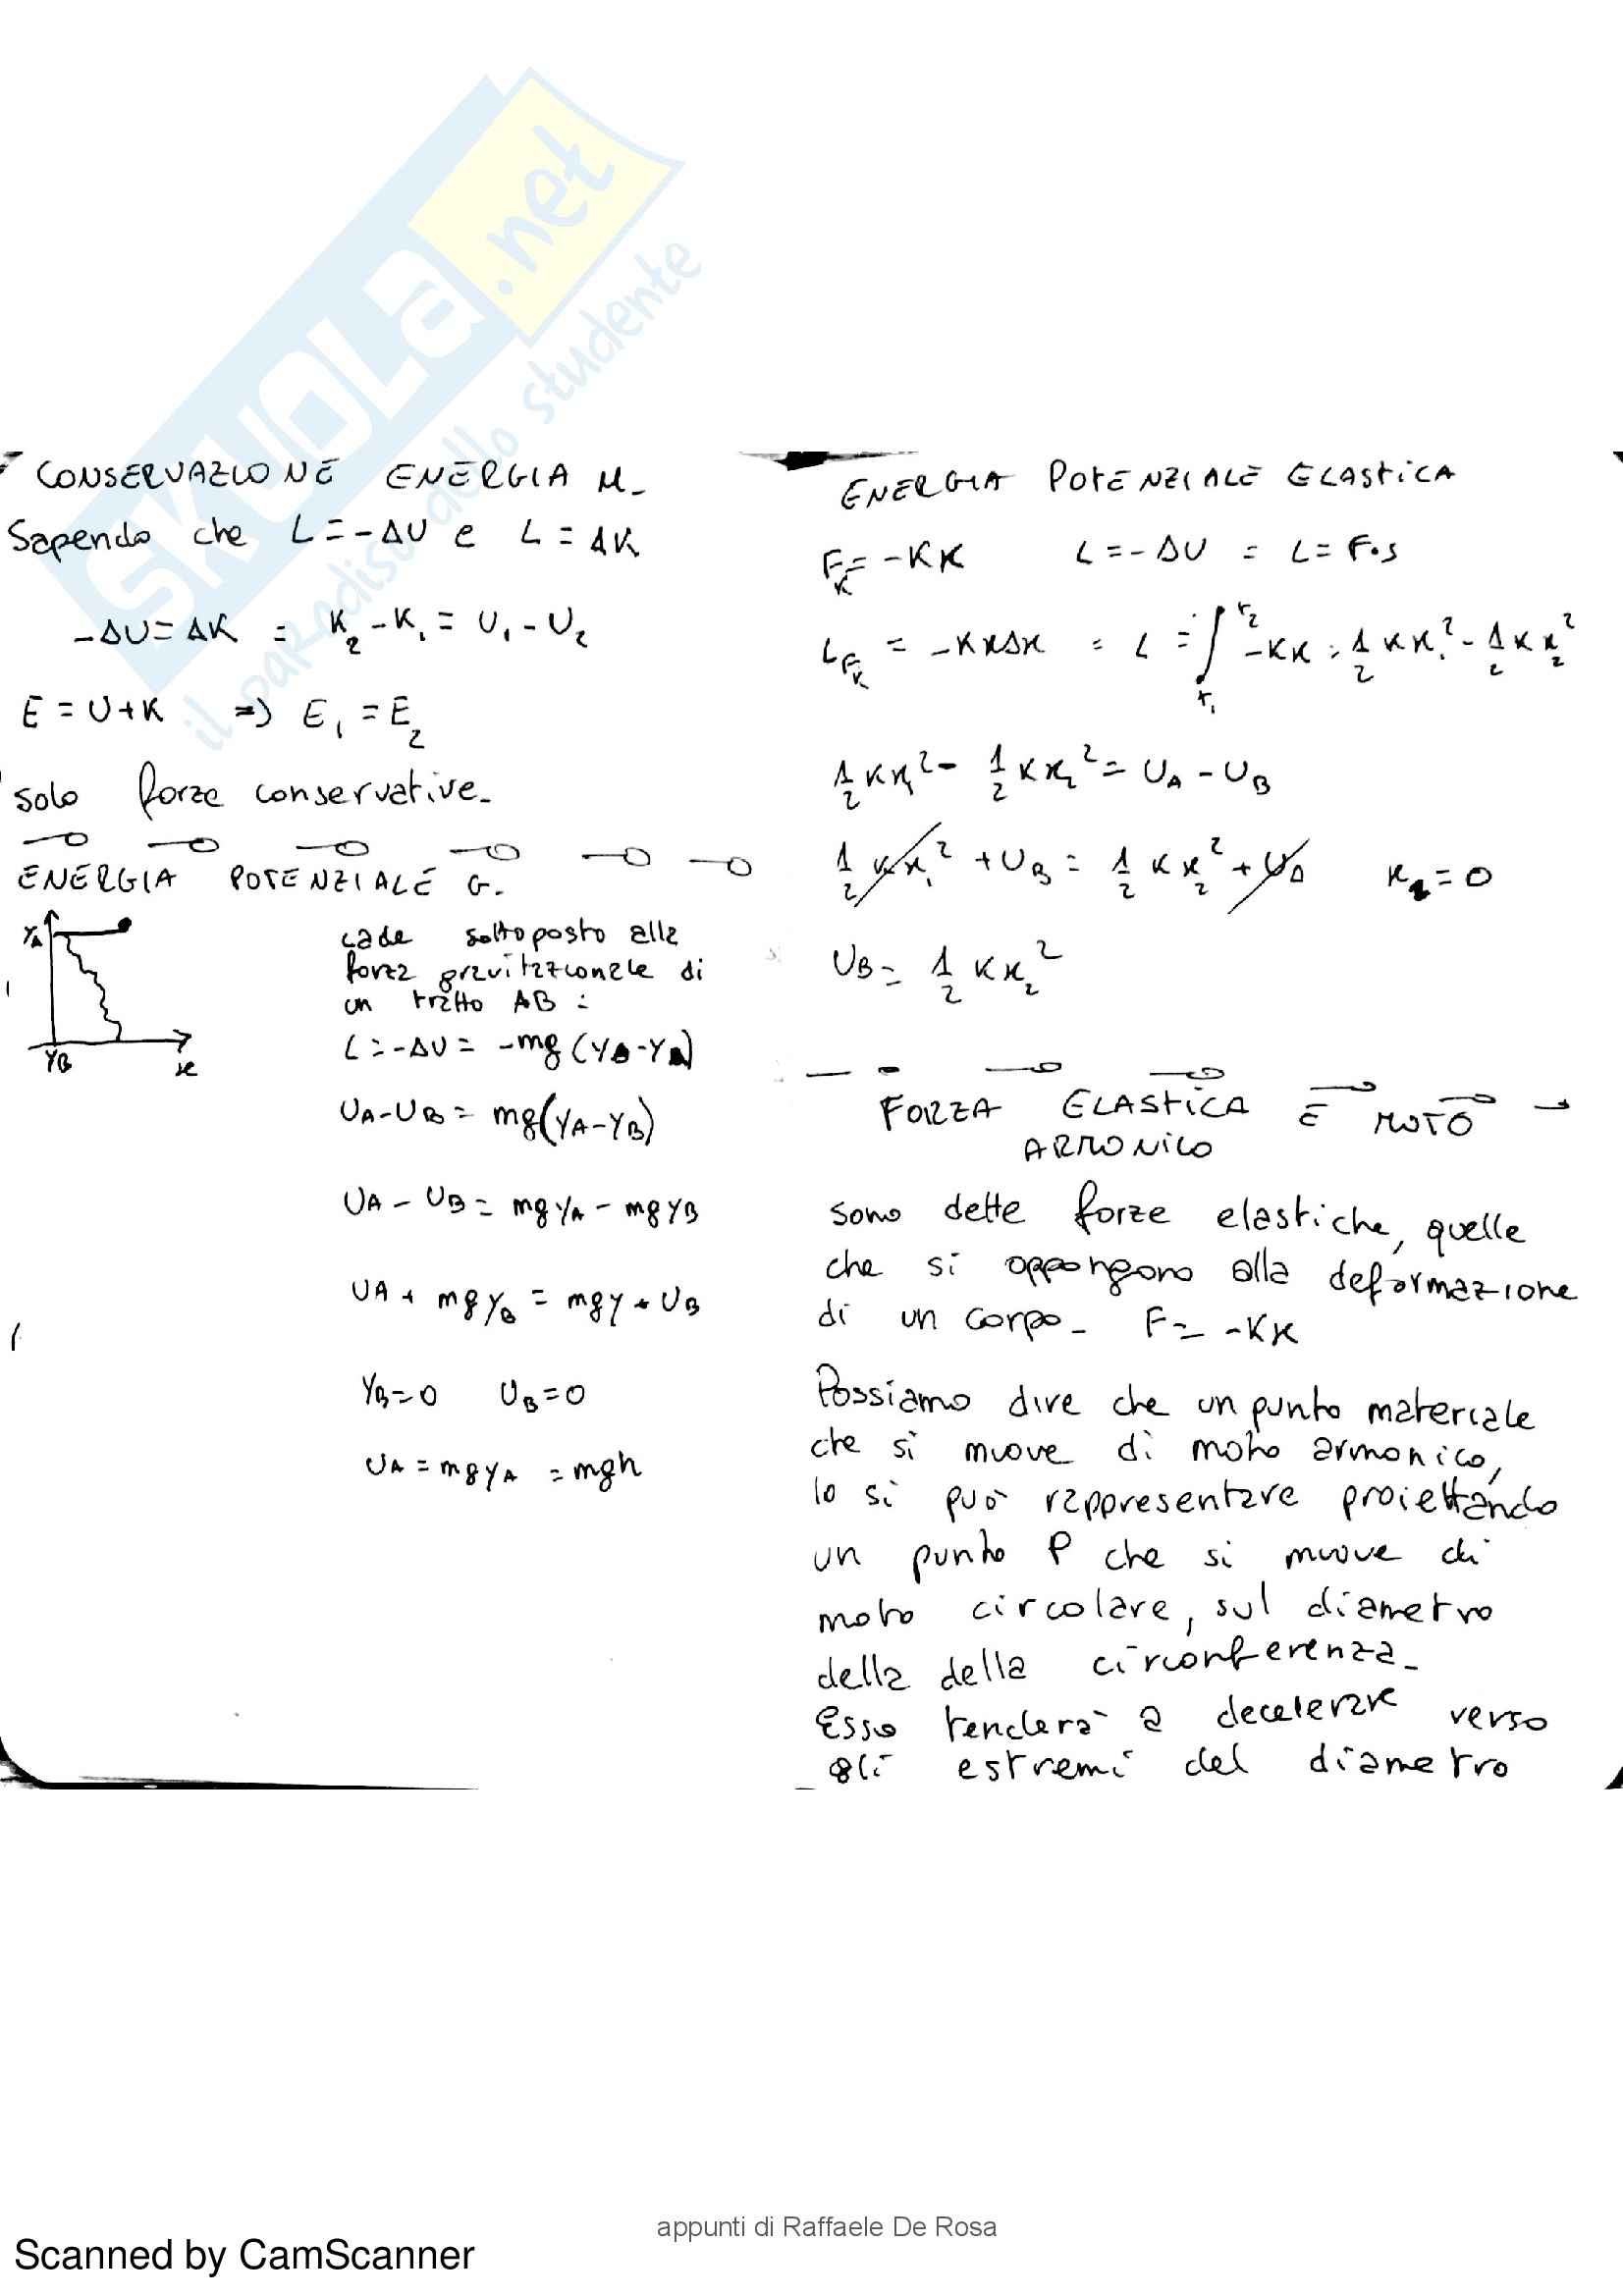 SKUOLA.net
il paradiso dello studente
CONSERVAZIONE ENERGIA M.
Sapendo che L=-ΔU e L=ΔK
-ΔU=ΔK = K₂-K₁=U₁-U₂
E=U+K => E₁=E₂
solo forze conservative.
ENERGIA POTENZIALE G.
YA
YB
x
cade sottoposto alla
forza gravitazionale di
un tratto AB:
L=-ΔU=-mg(
UA-UB=mg(YA-YB)
UA-UB=mgYA-mgYB
UA+mgYB=mgY+UB
YB=0 UB=0
UA=mgYA=mgh
ENERGIA POTENZIALE ELASTICA
Fₖ=-Kx L=-ΔU = L=F·s
L_Fₖ = -KxΔx = L = ∫ -Kx = 1/2 Kx₁² - 1/2 Kx₂²
1/2 Kx₁² - 1/2 Kx₂² = UA-UB
1/2 Kx₁² + UB = 1/2 Kx₂² + UA =0
UB= 1/2 Kx₂²
FORZA ELASTICA E MOTO
ARMONICO
sono dette forze elastiche, quelle
che si oppongono alla deformazione
di un corpo. F=-Kx
Possiamo dire che un punto materiale
che si muove di moto armonico,
lo si può rappresentare proiettando
un punto P che si muove di
moto circolare, sul diametro
della della circonferenza.
Esso tenderà a decelerare verso
gli estremi del diametro
appunti di Raffaele De Rosa
Scanned by CamScanner